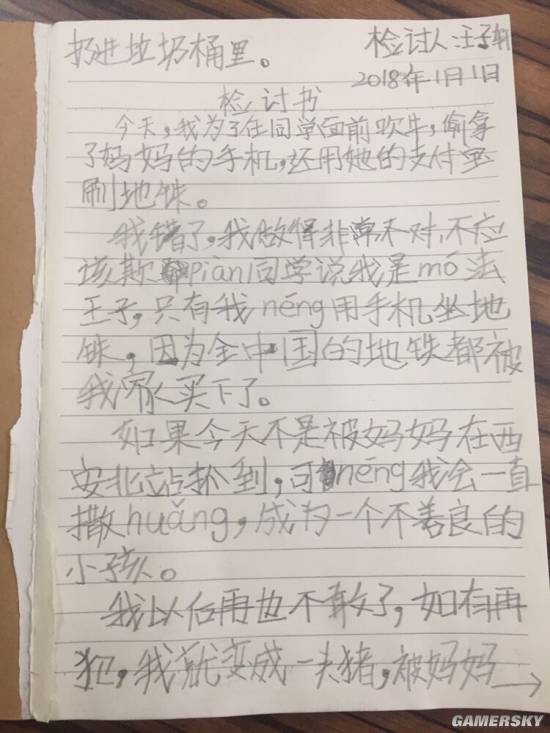 扔进垃圾桶里。
检讨人:汪子轩
2018年1月1日
检讨书
今天,我为了在同学面前吹牛,偷拿
了妈妈的手机,还用她的支付宝
刷地铁。
我错了,我做得非常不对,不应
该欺piàn同学说我是mó法
王子,只有我néng用手机坐地
铁,因为全中国的地铁都被
我家买下了。
如果今天不是被妈妈在西
安北站抓到,可néng我会一直
撒huǎng,成为一个不善良的
小孩。
我以后再也不敢了,如有再
犯,我就变成一头猪,被妈妈→
GAMERSKY